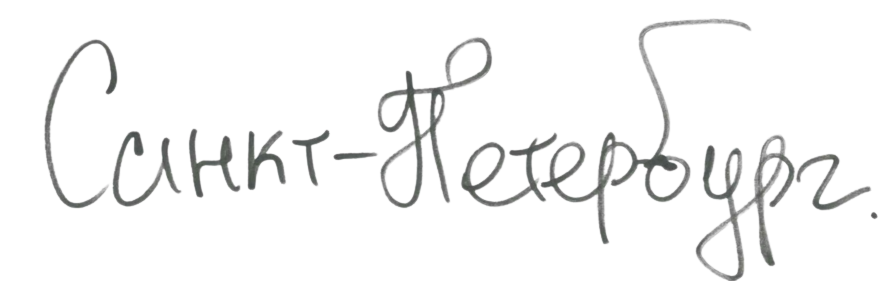 Санкт-Петербург.